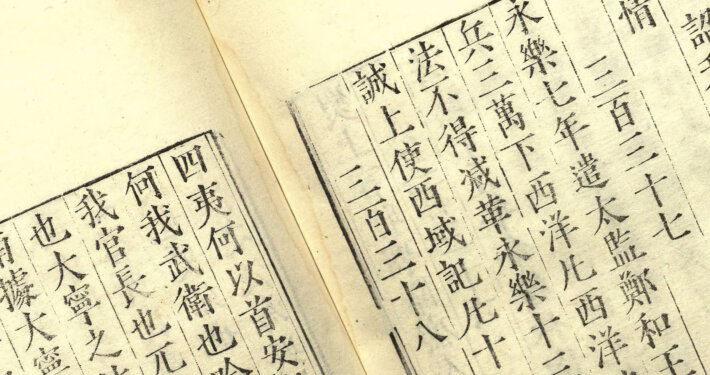 詔
情
三百三十七
永樂七年遣太監鄭和王
兵三萬下西洋凡西洋
法不得减革永樂十三
誠上使西域記凡十
三百三十八
四夷何以首安
何我武衛也
我官長也元
也大寧之
據大寧